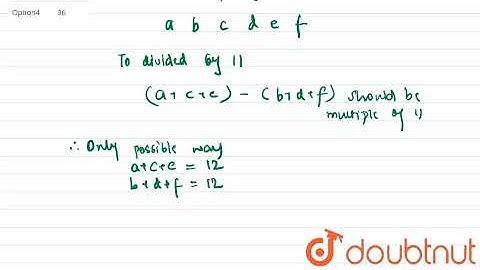 Option4 36
a b c d e f
To divided by 11
(a+c+e) - (b+d+f) should be
multiple of 11
∴ Only possible way
a+c+e = 12
b+d+f = 12
doubtnut